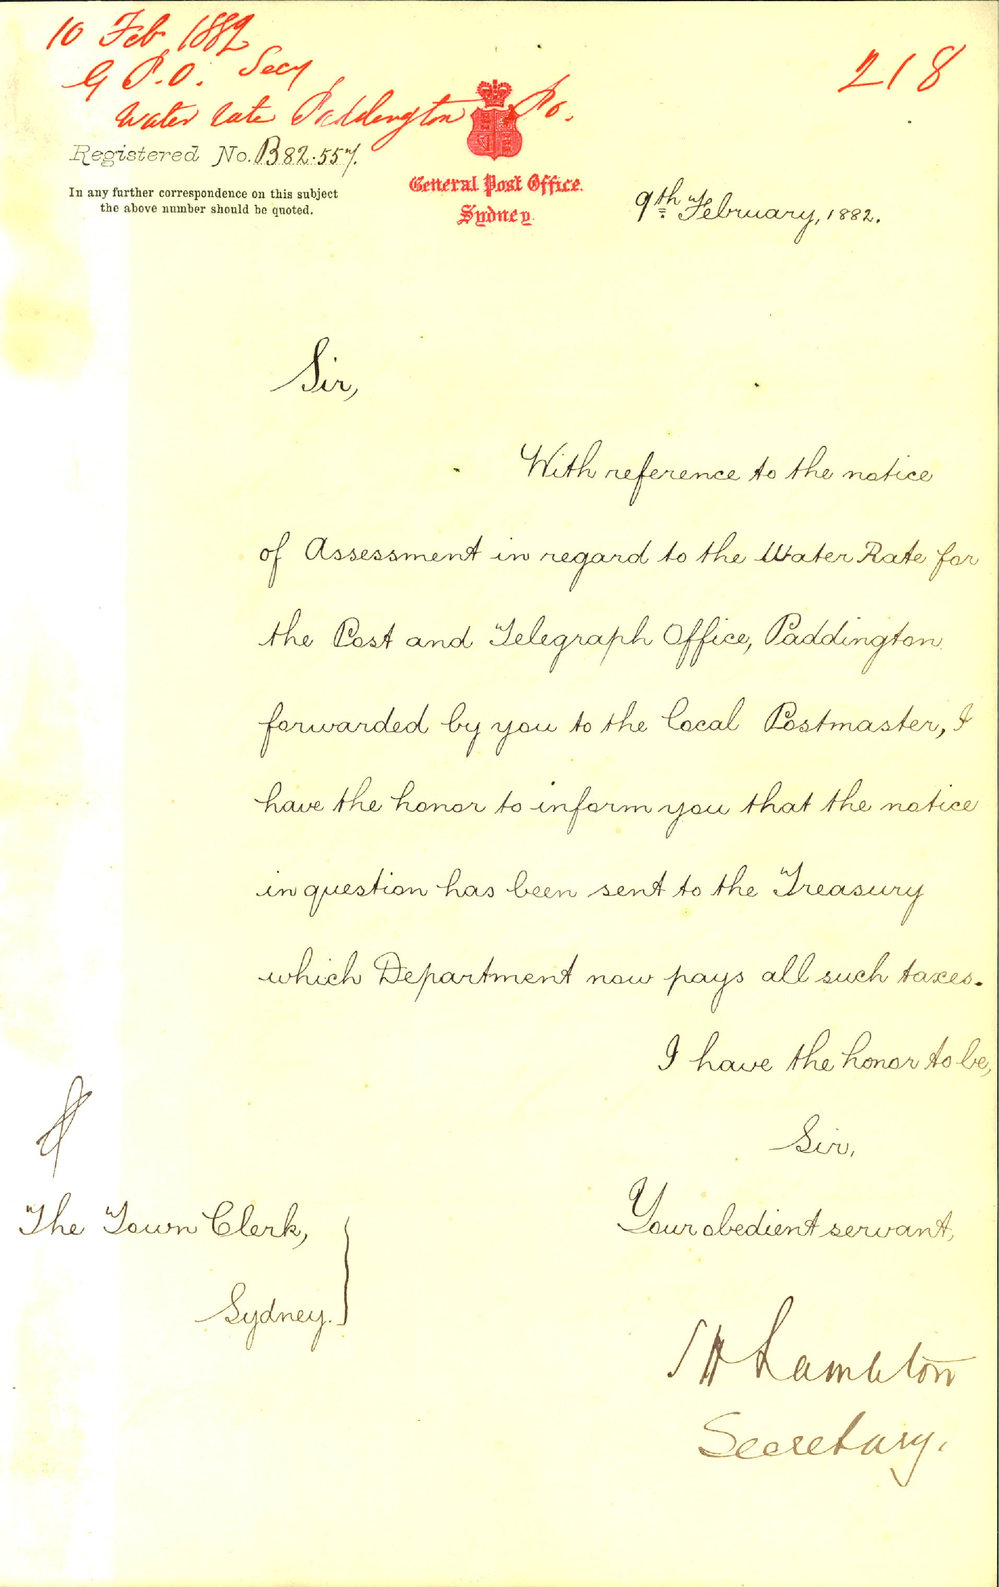 10 Feb 1882
G P.O. Secy
218
Water rate Paddington Po.
Registered No. B82.557.
In any further correspondence on this subject
the above number should be quoted.
General Post Office.
Sydney.
9th February, 1882.
Sir,
With reference to the notice
of Assessment in regard to the Water Rate for
the Post and Telegraph Office, Paddington
forwarded by you to the local Postmaster, I
have the honor to inform you that the notice
in question has been sent to the Treasury
which Department now pays all such taxes.
I have the honor to be,
Sir,
Your obedient servant,
The Town Clerk,
Sydney.
S H Lambton
Secretary.